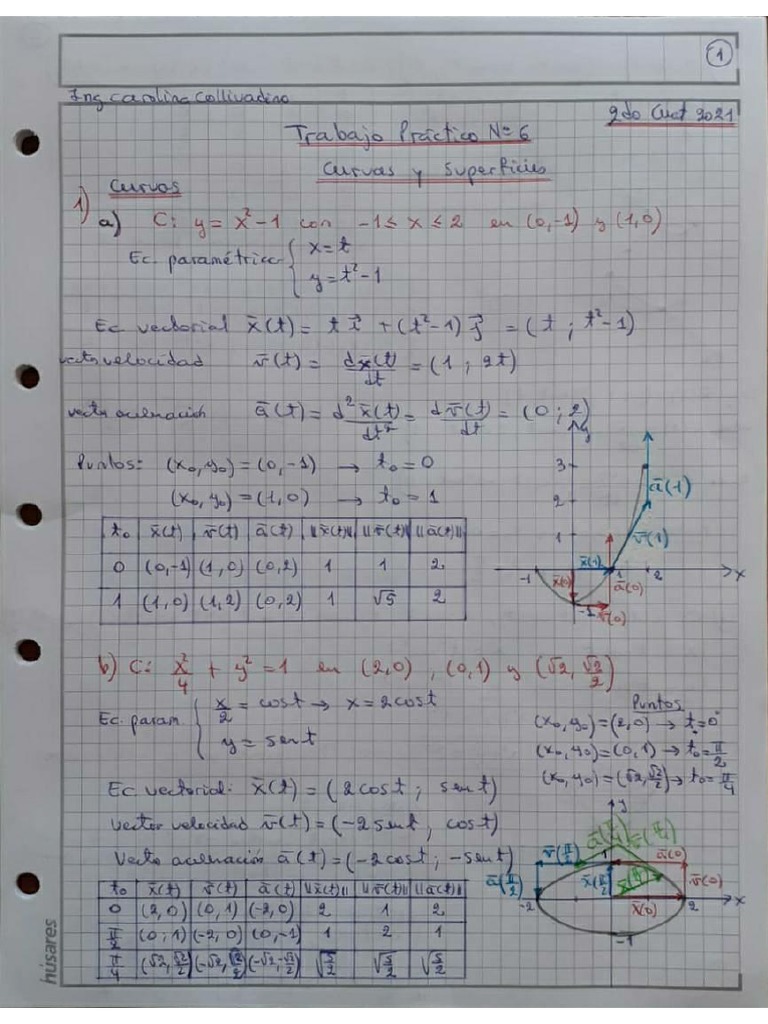 1
Ing Carolina Collivadino
2do Cuat 2021
Trabajo Práctico Nº 6
Curvas y Superficies
Curvas
1)
a) C: y = x² - 1 con -1 ≤ x ≤ 2 en (0,-1) y (1,0)
Ec. paramétrica { x = t
y = t² - 1
Ec vectorial x̄(t) = t i⃗ + (t² - 1) j⃗ = (t ; t² - 1)
vector velocidad v̄(t) = dx̄(t)/dt = (1 ; 2t)
vector aceleración ā(t) = d²x̄(t)/dt² = dv̄(t)/dt = (0 ; 2)
Puntos: (x₀, y₀) = (0, -1) → t₀ = 0
(x₀, y₀) = (1, 0) → t₀ = 1
t₀ x̄(t) v̄(t) ā(t) ||x̄(t)|| ||v̄(t)|| ||ā(t)||
0 (0,-1) (1,0) (0,2) 1 1 2
1 (1,0) (1,2) (0,2) 1 √5 2
y
3
2
ā(1)
1
v̄(1)
x̄(1)
-1 1 2 x
x̄(0) ā(0)
-1 v̄(0)
b) C: x²/4 + y² = 1 en (2,0), (0,1) y (√2, √2/2)
Ec. param. { x/2 = cost → x = 2cost
y = sent
Puntos
(x₀, y₀) = (2,0) → t₀ = 0
(x₀, y₀) = (0,1) → t₀ = π/2
(x₀, y₀) = (√2, √2/2) → t₀ = π/4
Ec vectorial: x̄(t) = (2cost ; sent)
Vector velocidad v̄(t) = (-2sent, cost)
Vector aceleración ā(t) = (-2cost ; -sent)
t₀ x̄(t) v̄(t) ā(t) ||x̄(t)|| ||v̄(t)|| ||ā(t)||
0 (2,0) (0,1) (-2,0) 2 1 2
π/2 (0;1) (-2,0) (0,-1) 1 2 1
π/4 (√2, √2/2) (-√2, √2/2) (-√2, -√2/2) √5/2 √5/2 √5/2
y
ā(π/4) v̄(π/4)
v̄(π/2) 1 ā(0)
ā(π/2) x̄(π/2) x̄(π/4) v̄(0)
-2 x̄(0) 2 x
-1
húsares